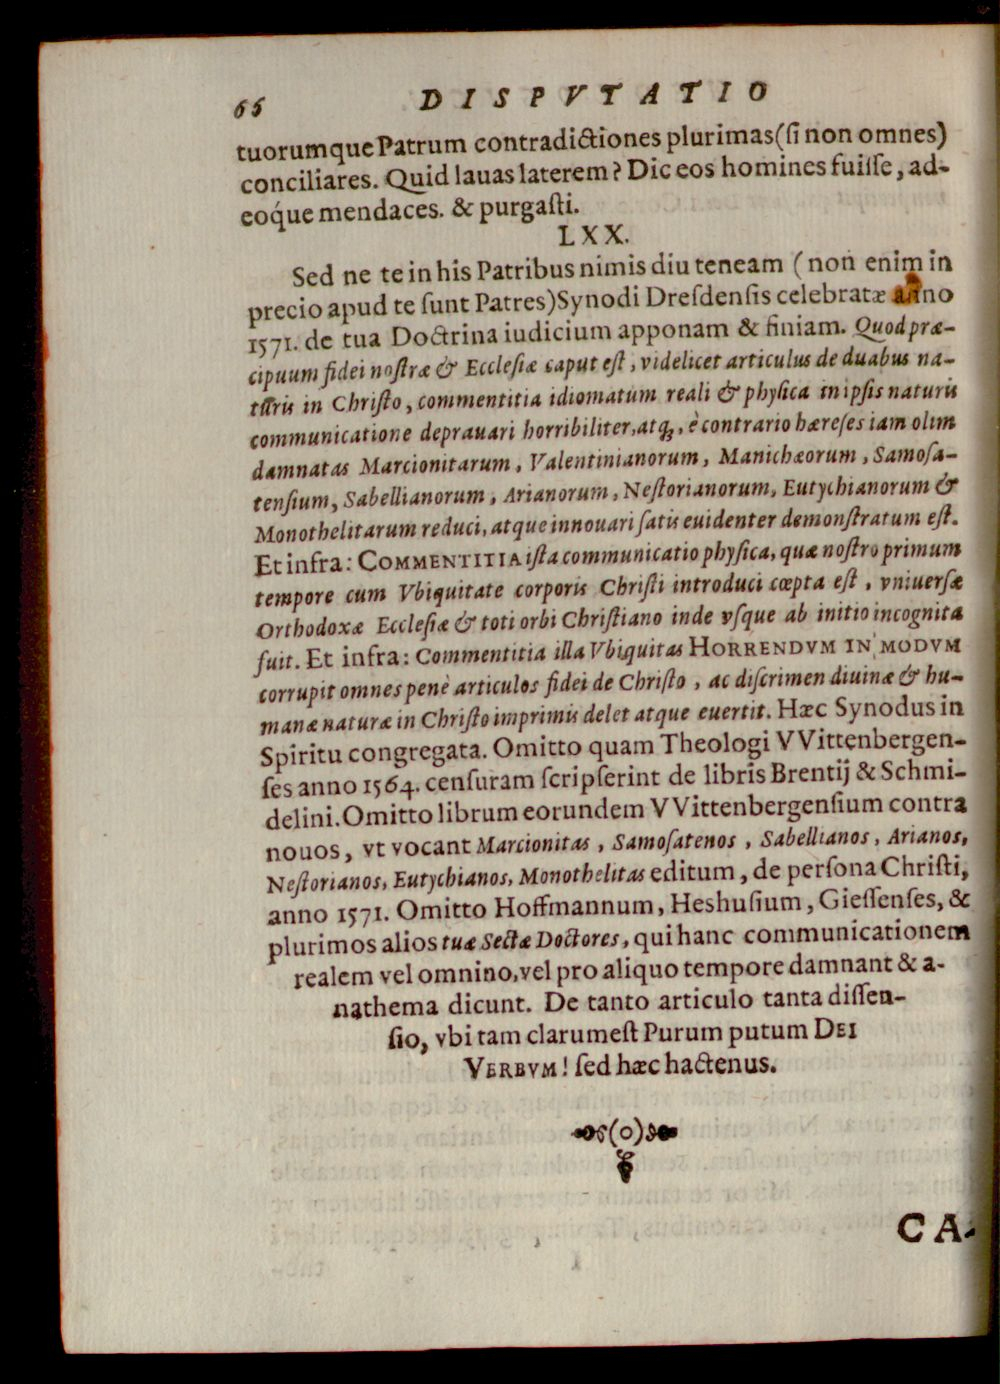 66 DISPVTATIO
tuorumque Patrum contradictiones plurimas (ſi non omnes)
conciliares. Quid lauas laterem? Dic eos homines fuiſſe, ad-
eóque mendaces. & purgaſti.
LXX.
Sed ne te in his Patribus nimis diu teneam (non enim in
precio apud te ſunt Patres) Synodi Dreſdenſis celebratæ anno
1571. de tua Doctrina iudicium apponam & finiam. Quod præ-
cipuum fidei noſtræ & Eccleſiæ caput eſt, videlicet articulus de duabus na-
turis in Chriſto, commentitia idiomatum reali & phyſica in ipſis naturis
communicatione deprauari horribiliter, atq́;, è contrario hæreſes iam olim
damnatas Marcionitarum, Valentinianorum, Manichæorum, Samoſa-
tenſium, Sabellianorum, Arianorum, Neſtorianorum, Eutychianorum &
Monothelitarum reduci, atque innouari ſatis euidenter demonſtratum eſt.
Et infra: COMMENTITIA iſta communicatio phyſica, quæ noſtro primum
tempore cum Vbiquitate corporis Chriſti introduci cœpta eſt, vniuerſæ
Orthodoxæ Eccleſiæ & toti orbi Chriſtiano inde vſque ab initio incognita
fuit. Et infra: Commentitia illa Vbiquitas HORRENDVM IN MODVM
corrupit omnes penè articulos fidei de Chriſto, ac diſcrimen diuinæ & hu-
manæ naturæ in Chriſto imprimis delet atque euertit. Hæc Synodus in
Spiritu congregata. Omitto quam Theologi VVittenbergen-
ſes anno 1564. cenſuram ſcripſerint de libris Brentij & Schmi-
delini. Omitto librum eorundem VVittenbergenſium contra
nouos, vt vocant Marcionitas, Samoſatenos, Sabellianos, Arianos,
Neſtorianos, Eutychianos, Monothelitas editum, de perſona Chriſti,
anno 1571. Omitto Hoffmannum, Heshuſium, Gieſſenſes, &
plurimos alios tuæ Sectæ Doctores, qui hanc communicationem
realem vel omnino, vel pro aliquo tempore damnant & a-
nathema dicunt. De tanto articulo tanta diſſen-
ſio, vbi tam clarum eſt Purum putum DEI
VERBVM! ſed hæc hactenus.
(o)
CA-